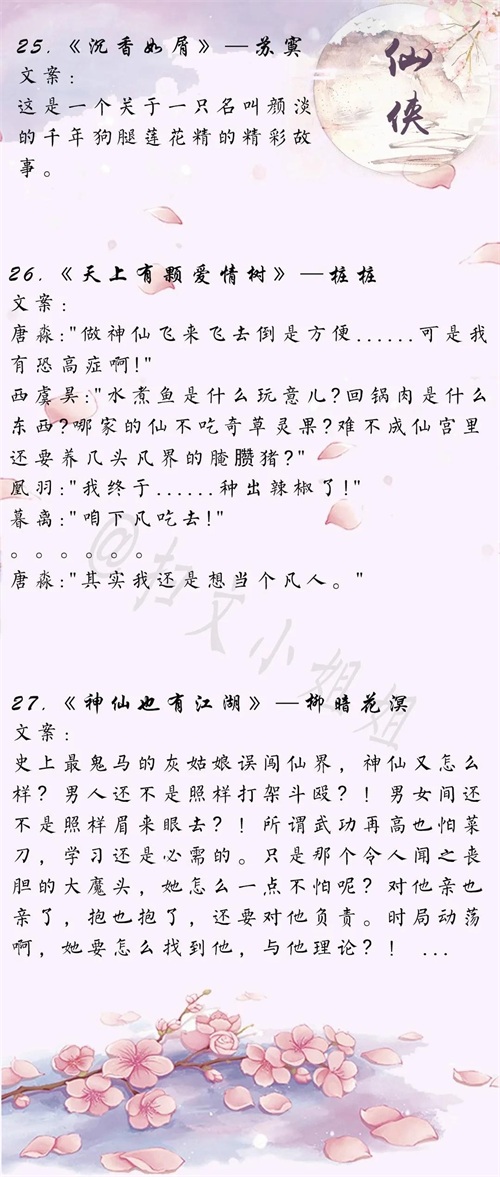 25.《沉香如屑》—苏寞
仙侠
文案：
这是一个关于一只名叫颜淡
的千年狗腿莲花精的精彩故
事。
26.《天上有颗爱情树》—桩桩
文案：
唐淼:"做神仙飞来飞去倒是方便......可是我
有恐高症啊!"
西虞昊:"水煮鱼是什么玩意儿?回锅肉是什么
东西?哪家的仙不吃奇草灵果?难不成仙宫里
还要养几头凡界的腌臜猪?"
凰羽:"我终于......种出辣椒了!"
暮离:"咱下凡吃去!"
。。。。。。
唐淼:"其实我还是想当个凡人。"
@扫文小姐姐
27.《神仙也有江湖》—柳暗花溟
文案：
史上最鬼马的灰姑娘误闯仙界，神仙又怎么
样？男人还不是照样打架斗殴？！男女间还
不是照样眉来眼去？！所谓武功再高也怕菜
刀，学习还是必需的。只是那个令人闻之丧
胆的大魔头，她怎么一点不怕呢？对他亲也
亲了，抱也抱了，还要对他负责。时局动荡
啊，她要怎么找到他，与他理论？！ ...